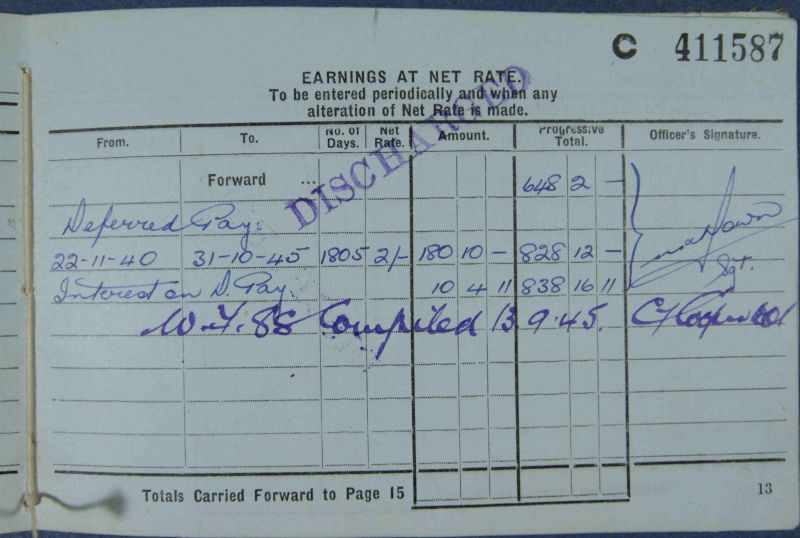 C 411587
EARNINGS AT NET RATE.
To be entered periodically and when any
alteration of Net Rate is made.
DISCHARGED
From. To. No. of Days. Net Rate. Amount. Progressive Total. Officer's Signature.
Forward ... 648 2 —
Deferred Pay.
22-11-40 31-10-45 1805 2/- 180 10 — 828 12 —
Sgt.
Interest on D. Pay. 10 4 11 838 16 11
W.F. 88 Compiled 13 9.45.
Totals Carried Forward to Page 15
13